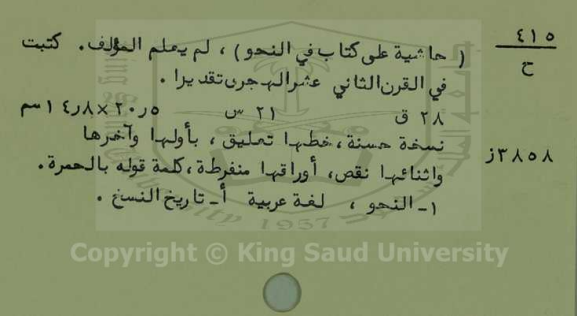 ٤١٥
ح
( حاشية على كتاب في النحو ) ، لم يعلم المؤلف . كتبت
في القرن الثاني عشر الهجرى تقديرا .
٢٨ ق ٢١ س ٢٠٫٥×١٤٫٨ سم
٣٨٥٨ز
نسخة حسنة ، خطها تعليق ، بأولها وآخرها
واثنائها نقص ، أوراقها منفرطة ، كلمة قوله بالحمرة .
١ـ النحو ، لغة عربية أ ـ تاريخ النسخ .
1957
Copyright © King Saud University